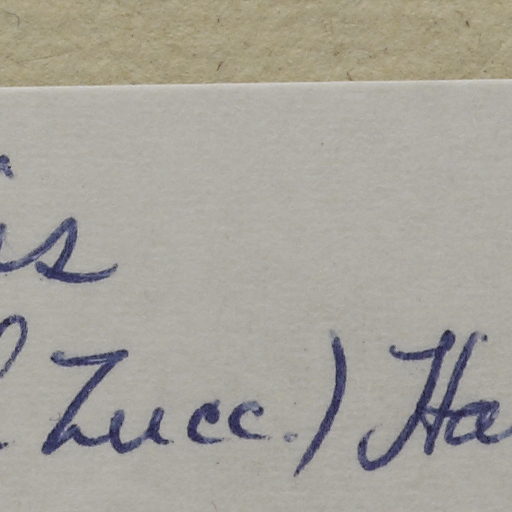 is
Zucc.) Ha